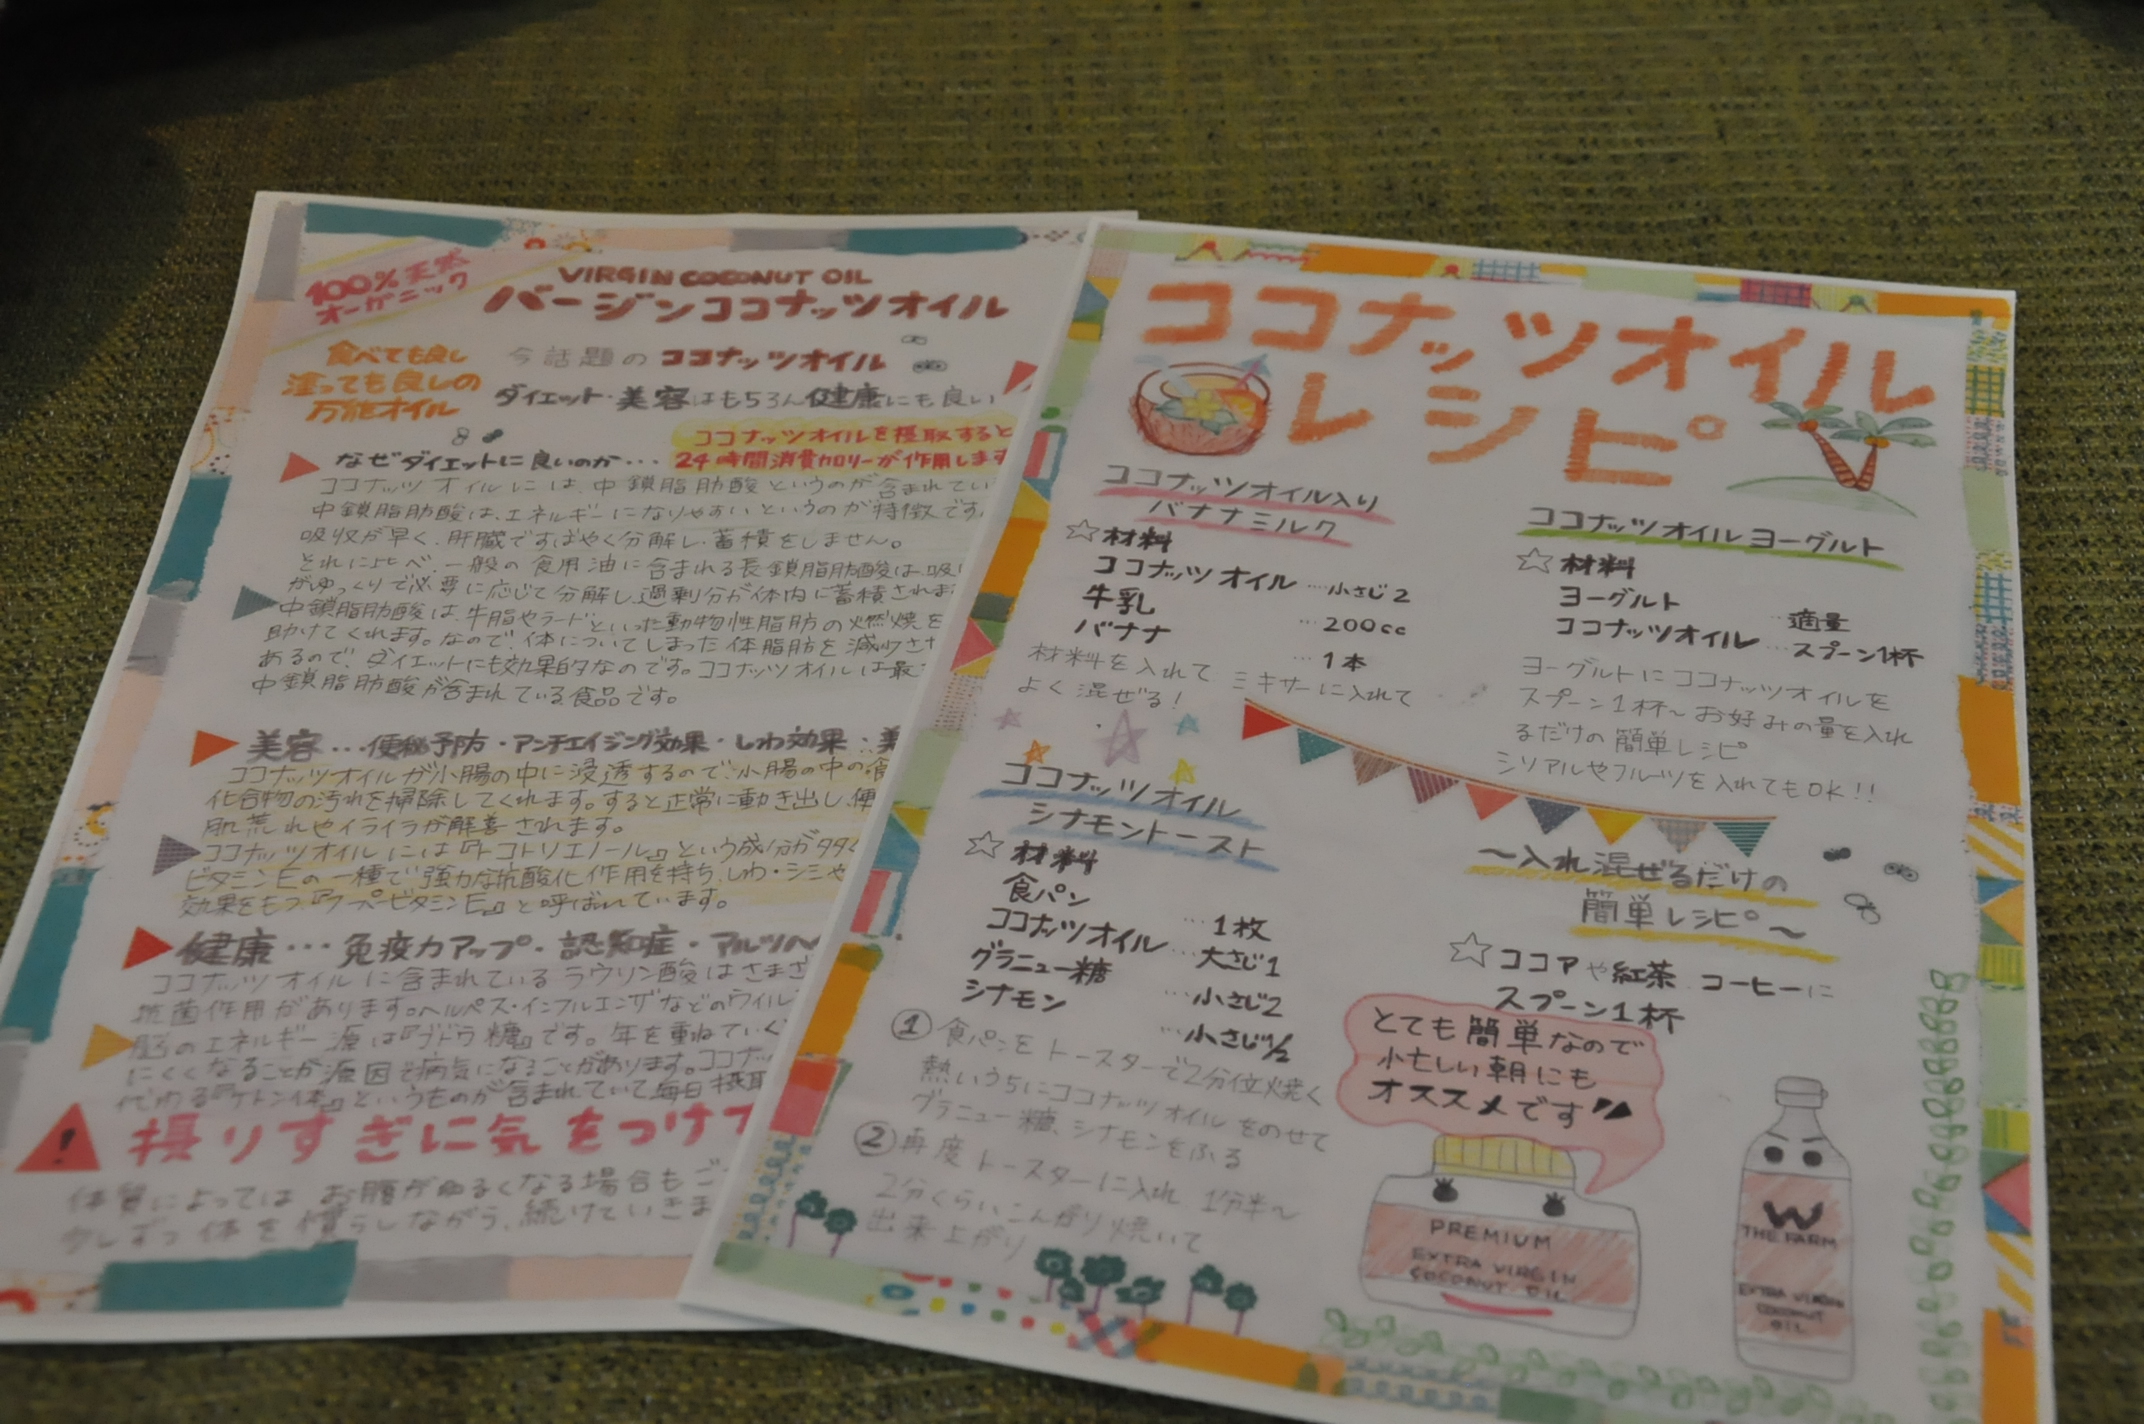 100%天然
オーガニック
VIRGIN COCONUT OIL
バージンココナッツオイル
食べても良し
塗っても良しの
万能オイル
今話題のココナッツオイル
ダイエット・美容はもちろん健康にも良い
ココナッツオイルを摂取すると
24時間消費カロリーが作用します
なぜダイエットに良いのか…
ココナッツオイルには、中鎖脂肪酸というのが含まれてい
中鎖脂肪酸は、エネルギーになりやすいというのが特徴です。
吸収が早く、肝臓ですばやく分解し、蓄積をしません。
それに比べ、一般の食用油に含まれる長鎖脂肪酸は、吸
がゆっくりで必要に応じて分解し、過剰分が体内に蓄積されま
中鎖脂肪酸は、牛脂やラードといった動物性脂肪の燃焼を
助けてくれます。なので、体についてしまった体脂肪を減少させ
あるので、ダイエットにも効果的なのです。ココナッツオイルは最
中鎖脂肪酸が含まれている食品です。
美容…便秘予防・アンチエイジング効果・しわ効果・美
ココナッツオイルが小腸の中に浸透するので、小腸の中の食
化合物の汚れを掃除してくれます。すると正常に動き出し、便
肌荒れやイライラが解善されます。
ココナッツオイルには『トコトリエノール』という成分が多く
ビタミンEの一種で強力な抗酸化作用を持ち、しわ・シミや
効果をもつ『スーパービタミンE』と呼ばれています。
健康…免疫力アップ・認知症・アルツハ
ココナッツオイルに含まれているラウリン酸はさまざ
抗菌作用があります。ヘルペス・インフルエンザなどのウイルス
脳のエネルギー源は『ブドウ糖』です。年を重ねていく
にくくなることが原因で病気になることがあります。ココナッ
代わる『ケトン体』というものが含まれていて毎日摂取
摂りすぎに気をつけて
体質によっては お腹がゆるくなる場合もご
少しずつ体を慣らしながら、続けていきま
ココナッツオイル
レシピ
ココナッツオイル入り
バナナミルク
☆材料
ココナッツオイル …小さじ2
牛乳 …200cc
バナナ …1本
材料を入れて ミキサーに入れて
よく混ぜる!
ココナッツオイルヨーグルト
☆材料
ヨーグルト …適量
ココナッツオイル …スプーン1杯
ヨーグルトにココナッツオイルを
スプーン1杯〜お好みの量を入れ
るだけの簡単レシピ
シリアルやフルーツを入れてもOK!!
ココナッツオイル
シナモントースト
☆材料
食パン …1枚
ココナッツオイル …大さじ1
グラニュー糖 …小さじ2
シナモン …小さじ1/2
①食パンをトースターで2分位焼く
熱いうちにココナッツオイルをのせて
グラニュー糖、シナモンをふる
②再度トースターに入れ 1分半〜
2分くらいこんがり焼いて
出来上がり
〜入れ混ぜるだけの
簡単レシピ〜
☆ココアや紅茶 コーヒーに
スプーン1杯
とても簡単なので
忙しい朝にも
オススメです
PREMIUM
EXTRA VIRGIN
COCONUT OIL
W
THE FARM
EXTRA VIRGIN
COCONUT
OIL